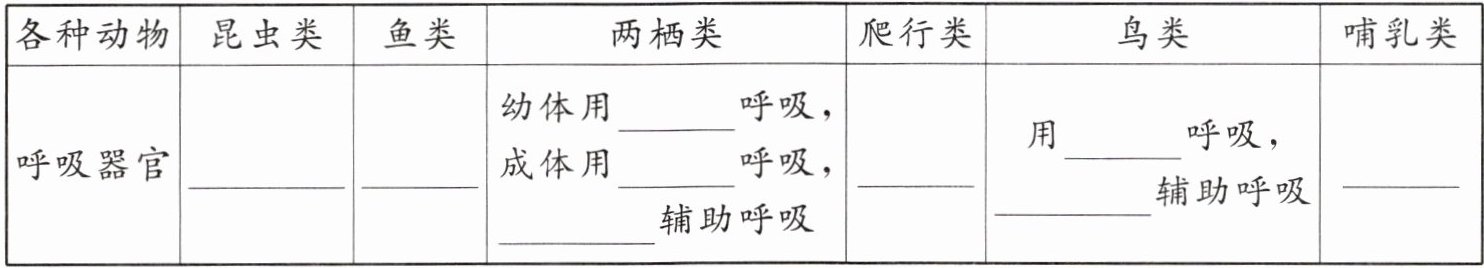 各种动物 昆虫类 鱼类 两栖类 爬行类 鸟类 哺乳类
呼吸器官
幼体用______呼吸，
成体用______呼吸，
______辅助呼吸
用______呼吸，
______辅助呼吸